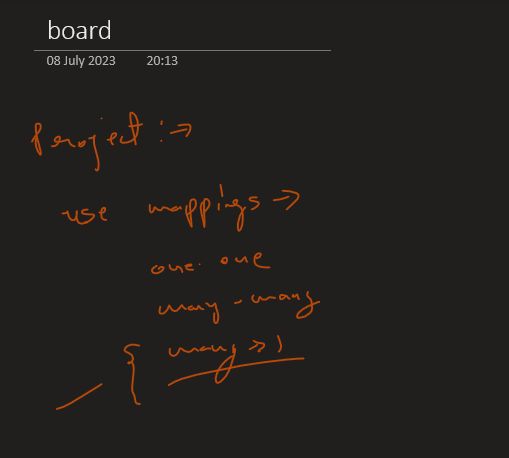 board
08 July 2023 20:13
Project :→
use mappings →
one-one
many-many
many >> 1